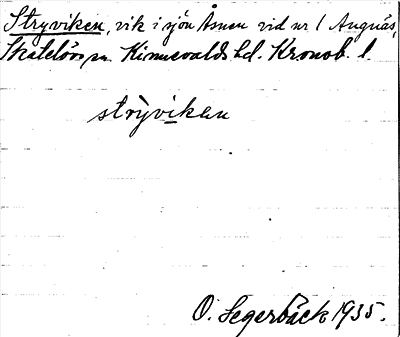 Stryviken, vik i sjön Åsnen vid nr 1 Angnäs,
Skatelövs sn Kinnevalds hd. Kronob. l.
strỳviken
O. Segerbäck 1935.